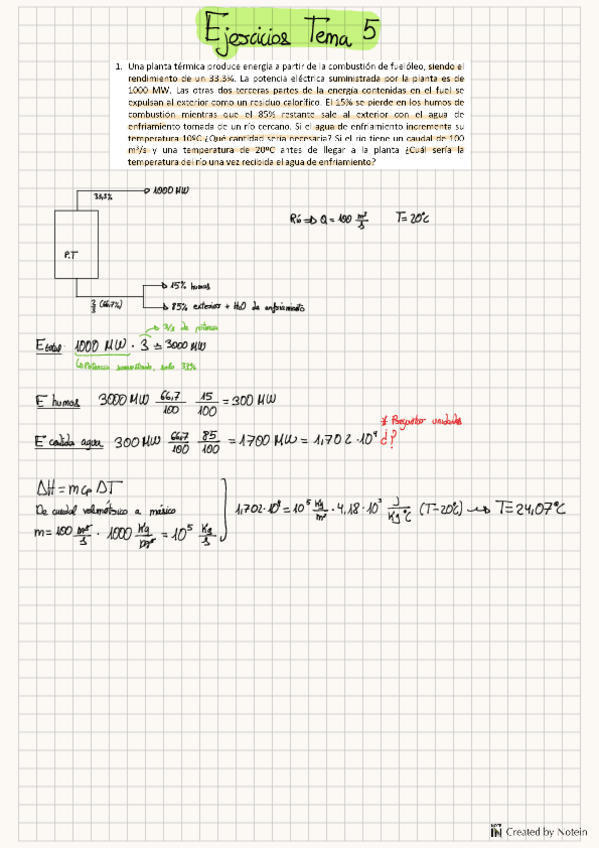 Ejercicios Tema 5
1. Una planta térmica produce energía a partir de la combustión de fuelóleo, siendo el
rendimiento de un 33.3%. La potencia eléctrica suministrada por la planta es de
1000 MW. Las otras dos terceras partes de la energía contenidas en el fuel se
expulsan al exterior como un residuo calorífico. El 15% se pierde en los humos de
combustión mientras que el 85% restante sale al exterior con el agua de
enfriamiento tomada de un río cercano. Si el agua de enfriamiento incrementa su
temperatura 10ºC ¿Qué cantidad sería necesaria? Si el río tiene un caudal de 100
m³/s y una temperatura de 20ºC antes de llegar a la planta ¿Cuál sería la
temperatura del río una vez recibida el agua de enfriamiento?
33,3% 1000 MW
Río ⇒ Q = 100 m³/s T= 20ºC
P.T
15% humos
2/3 (66,7%)
85% exterior + H₂O de enfriamiento
→ 3/3 de potencia
E total 1000 MW · 3 = 3000 MW
↳ Potencia suministrada, solo 33%
E humos 3000 MW 66,7/100 15/100 = 300 MW
* Preguntar unidades
E cedida agua 300 MW 66,7/100 85/100 = 1700 MW = 1,702 · 10⁹ ¿?
ΔH = m cp ΔT
De caudal volumétrico a másico
1,702·10⁹ = 10⁵ Kg/m³ · 4,18·10³ J/KgºC (T-20ºC) → T= 24,07ºC
m = 100 m³/s · 1000 Kg/m³ = 10⁵ Kg/s
NOTE IN Created by Notein